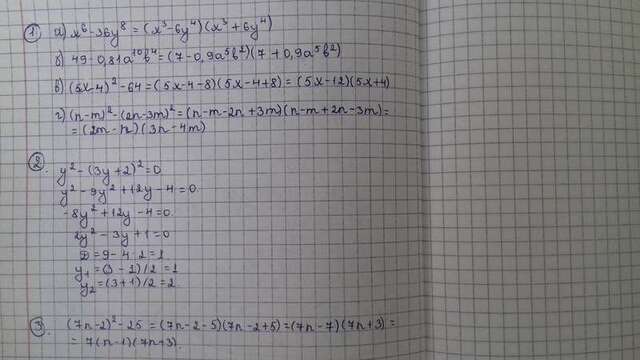 1) а) x⁶-36y⁸ = (x³-6y⁴)(x³+6y⁴)
б) 49-0,81a¹⁰b⁴ = (7-0,9a⁵b²)(7+0,9a⁵b²)
в) (5x-4)²-64 = (5x-4-8)(5x-4+8) = (5x-12)(5x+4)
г) (n-m)²-(2n-3m)² = (n-m-2n+3m)(n-m+2n-3m) =
= (2m-n)(3n-4m)
2.
y²-(3y+2)²=0
y²-9y²+12y-4=0
-8y²+12y-4=0
2y²-3y+1=0
D=9-4·2=1
y₁=(3-1)/2=1
y₂=(3+1)/2=2
3.
(7n-2)²-25 = (7n-2-5)(7n-2+5) = (7n-7)(7n+3) =
= 7(n-1)(7n+3).